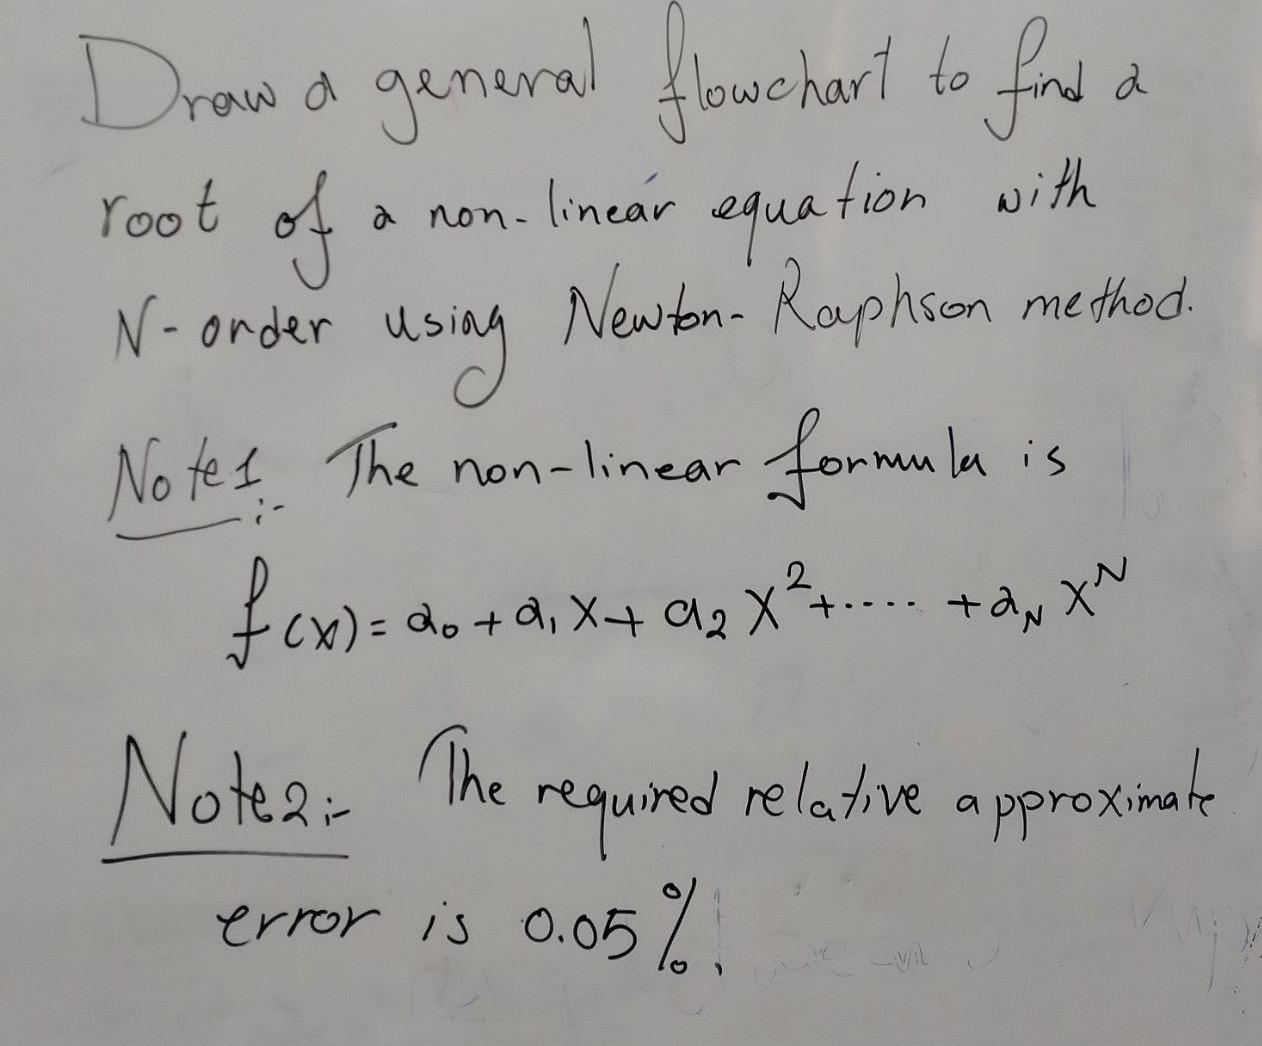 Draw a general flowchart to find a
root of a non-linear equation with
N-order using Newton-Raphson method.
Note1:- The non-linear formula is
f(x) = a₀ + a₁ x + a₂ x² + .... + a_N x^N
Note2:- The required relative approximate
error is 0.05%.